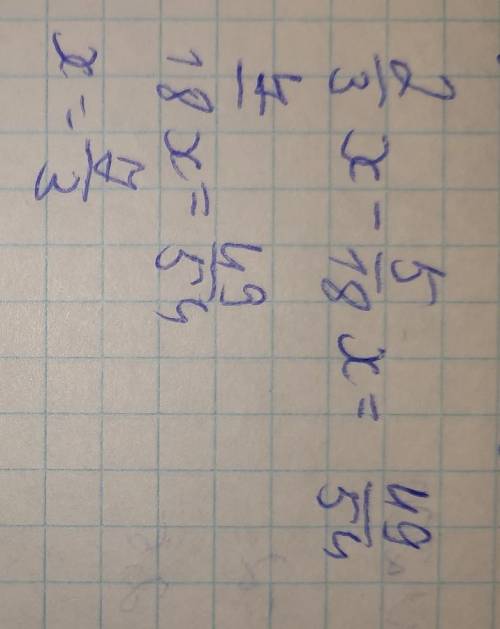 2/3 x - 5/18 x = 49/54
7/18 x = 49/54
x = 7/3